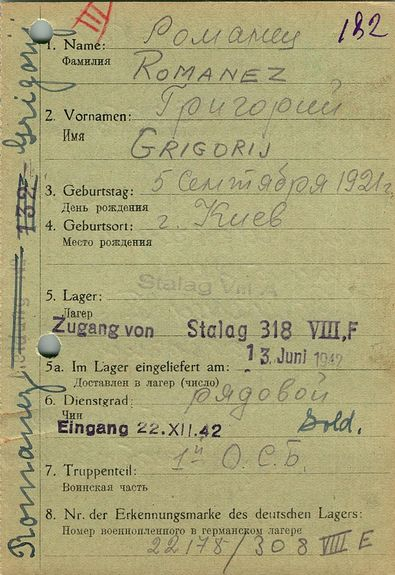 III
182
1. Name: Романец
Фамилия
ROMANEZ
2. Vornamen: Григорий
Имя
GRIGORIJ
3. Geburtstag: 5 Сентября 1921 г.
День рождения
4. Geburtsort: г. Киев
Место рождения
Stalag VIII A
5. Lager:
Лагер
Zugang von Stalag 318 VIII, F
13. Juni 1942
5a. Im Lager eingeliefert am:
Доставлен в лагер (число)
6. Dienstgrad: рядовой
Чин
Eingang 22.XII.42 Sold.
7. Truppenteil: 1й О.С.Б.
Воинская часть
8. Nr. der Erkennungsmarke des deutschen Lagers:
Номер военнопленного в германском лагере
22178/308 VIII E
Romanez 132 Grigorij